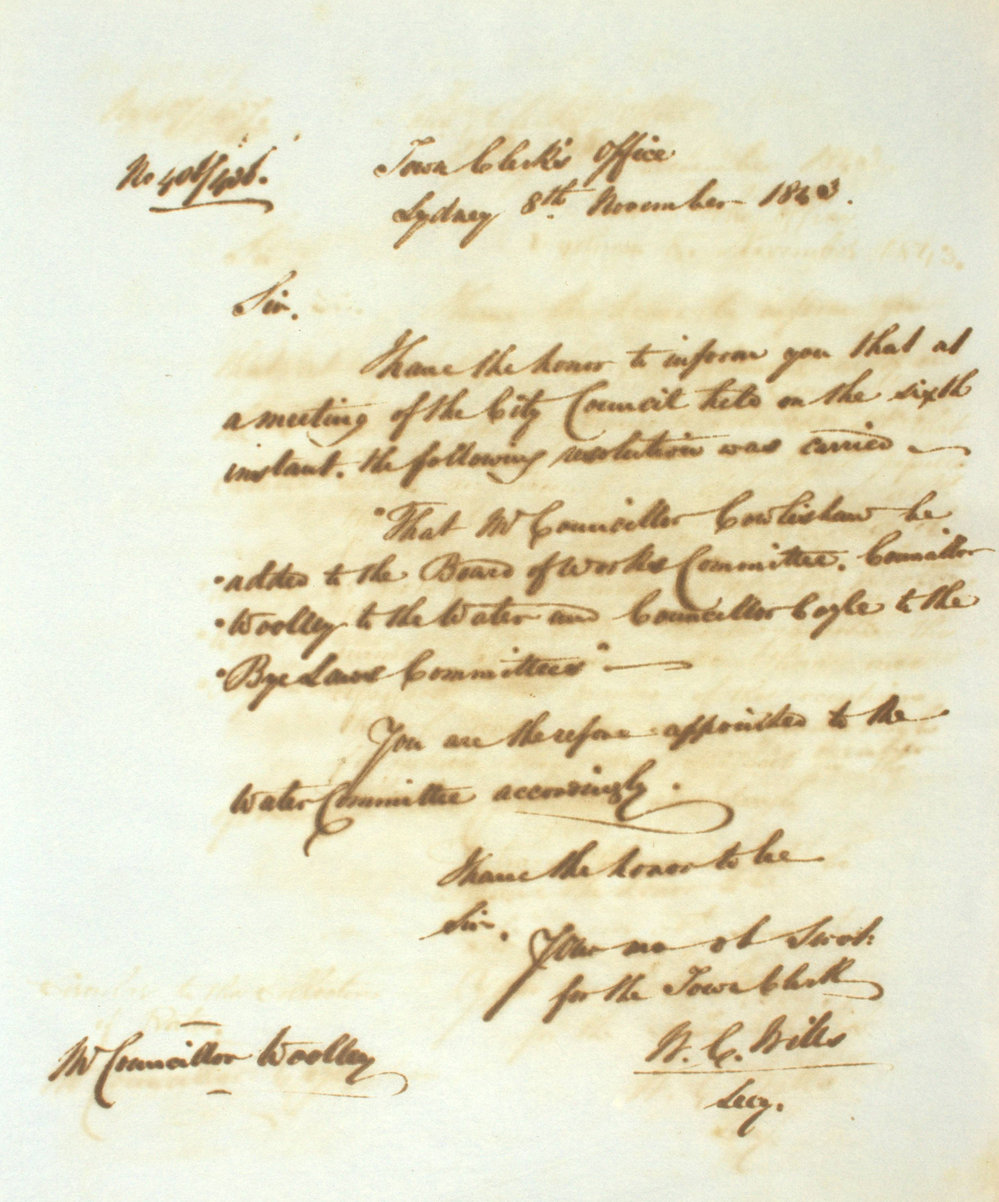 Town Clerk's Office
Sydney 8th November 1843.
Sir.
I have the honor to inform you that at
a meeting of the City Council held on the sixth
instant. the following resolution was carried —
"That Mr Councillor Cowlishaw be
"added to the Board of Works Committee. Councillor
"Woolley to the Water and Councillor Coyle to the
"Bye Laws Committees" —
You are therefore appointed to the
Water Committee accordingly.
I have the honor to be
Sir.
Your mo ob Servt:
for the Town Clerk
W. C. Wills
Secy.
Mr Councillor Woolley